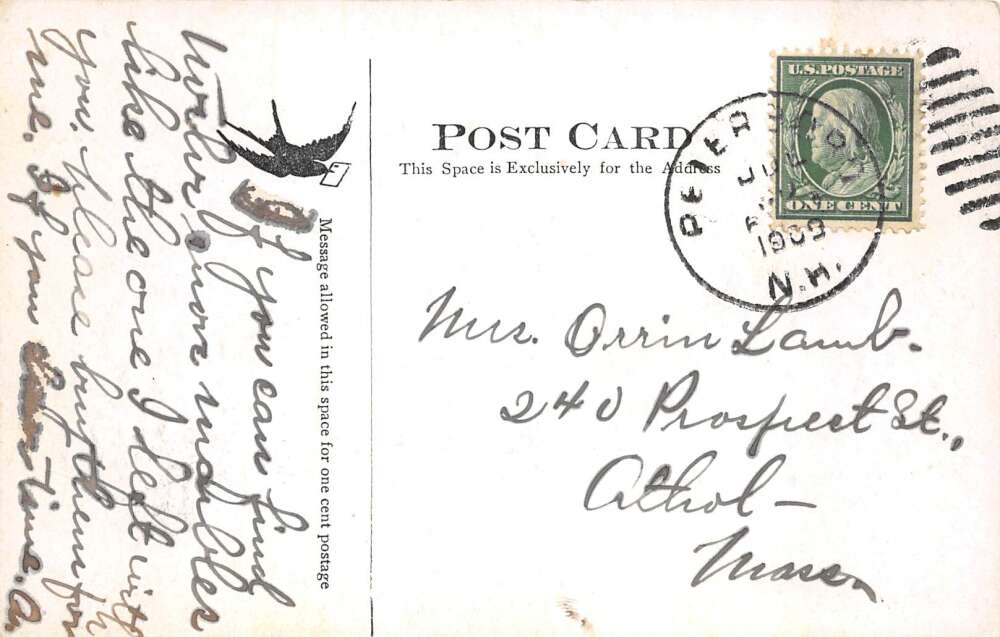 If you can find
two or more marbles
like the one I left with
you, please buy them for
me. If you time. A.
Message allowed in this space for one cent postage
POST CARD
This Space is Exclusively for the Address
U.S. POSTAGE
ONE CENT
PETER
JUL
1909
N.H.
Mrs. Orrin Lamb.
240 Prospect St.,
Athol—
Mass.